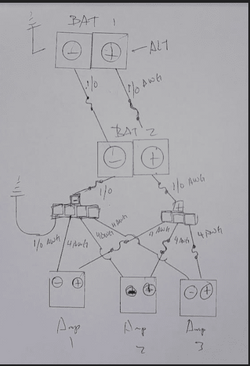 BAT 1
- + ← ALT
1/0 1/0 AWG
BAT 2
- +
1/0 1/0 AWG
1/0 AWG 4 AWG 4AWG 4AWG 4 AWG 4 AWG 4 AWG
- + + - +
Amp Amp Amp
1 2 3